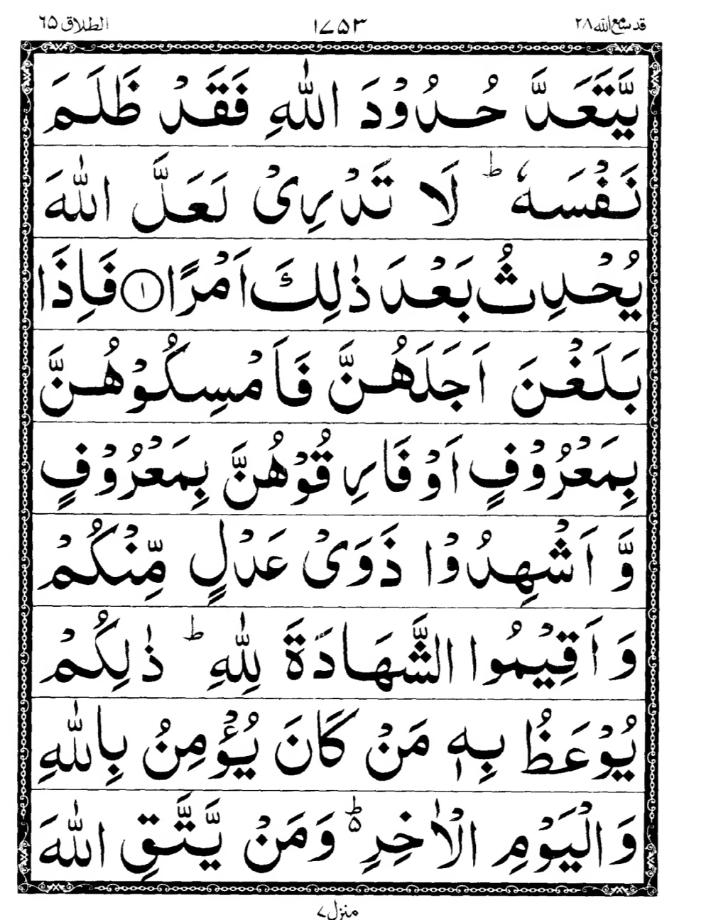 قد سمع الله ٢٨ ١٧٥٣ الطلاق ٦٥
يَّتَعَدَّ حُدُوْدَ اللّٰهِ فَقَدْ ظَلَمَ
نَفْسَهٗ ؕ لَا تَدْرِىْ لَعَلَّ اللّٰهَ
يُحْدِثُ بَعْدَ ذٰلِكَ اَمْرًا ۝١ فَاِذَا
بَلَغْنَ اَجَلَهُنَّ فَاَمْسِكُوْهُنَّ
بِمَعْرُوْفٍ اَوْ فَارِقُوْهُنَّ بِمَعْرُوْفٍ
وَّ اَشْهِدُوْا ذَوَىْ عَدْلٍ مِّنْكُمْ
وَ اَقِيْمُوا الشَّهَادَةَ لِلّٰهِ ؕ ذٰلِكُمْ
يُوْعَظُ بِهٖ مَنْ كَانَ يُؤْمِنُ بِاللّٰهِ
وَ الْيَوْمِ الْاٰخِرِ ۵ؕ وَمَنْ يَّتَّقِ اللّٰهَ
منزل ٧